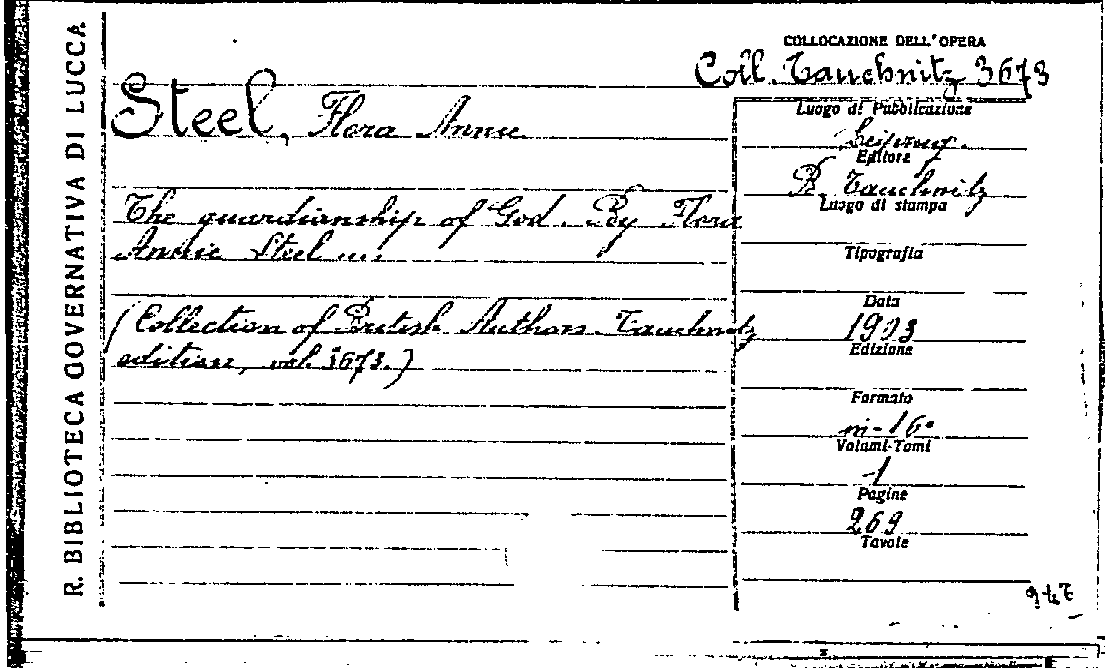 R. BIBLIOTECA GOVERNATIVA DI LUCCA
COLLOCAZIONE DELL'OPERA
Coll. Tauchnitz 3673
Steel, Flora Annie
The guardianship of God. By Flora
Annie Steel ....
(Collection of British Authors Tauchnitz
edition, vol. 3673.)
Luogo di Pubblicazione
Leipzig.
Editore
B. Tauchnitz
Luogo di stampa
Tipografia
Data
1903
Edizione
Formato
in-16°
Volumi-Tomi
1
Pagine
269
Tavole